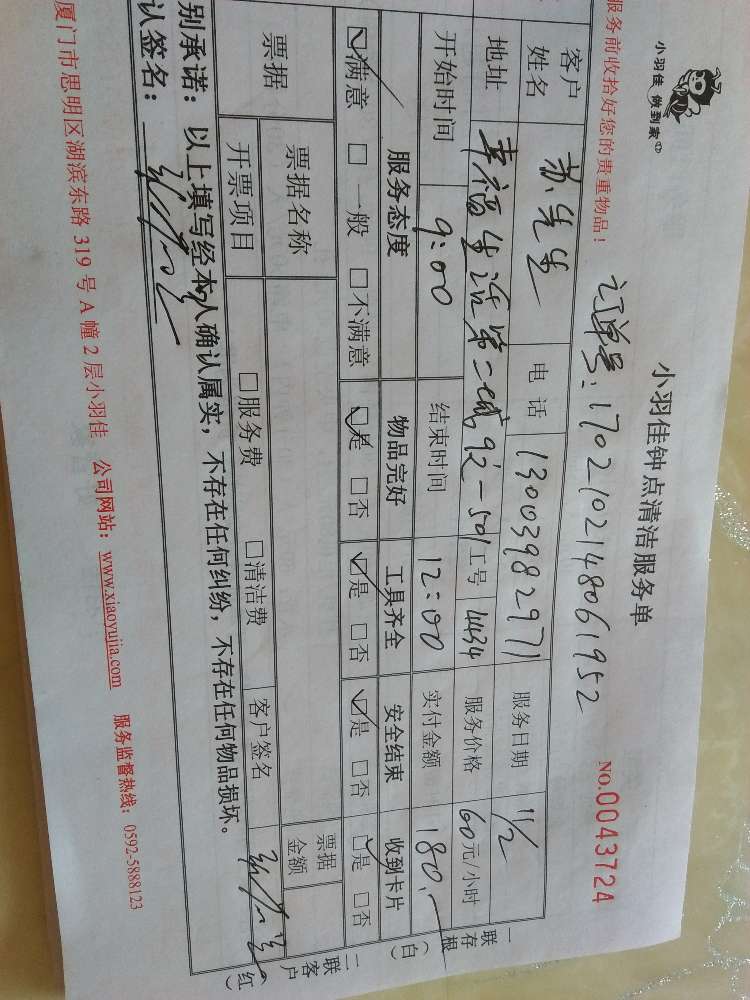 小羽佳 做到家
小羽佳钟点清洁服务单
服务前收拾好您的贵重物品！
订单号：1702102148061952
NO.0043724
客户姓名 苏先生 电话 13003982971 服务日期 11/2
地址 幸福生活第二城92-501 工号 4434 服务价格 60元/小时
开始时间 9:00 结束时间 12:00 实付金额 180.-
服务态度 物品完好 工具齐全 安全结束 收到卡片
☑满意 □一般 □不满意 ☑是 □否 ☑是 □否 ☑是 □否 ☑是 □否
票据 票据名称 票据金额
开票项目 □服务费 □清洁费 客户签名
别承诺：以上填写经本人确认属实，不存在任何纠纷，不存在任何物品损坏。
认签名：
厦门市思明区湖滨东路 319 号 A 幢 2 层小羽佳 公司网站：www.xiaoyujia.com 服务监督热线：0592-5888123
一联存根（白）
二联客户（红）